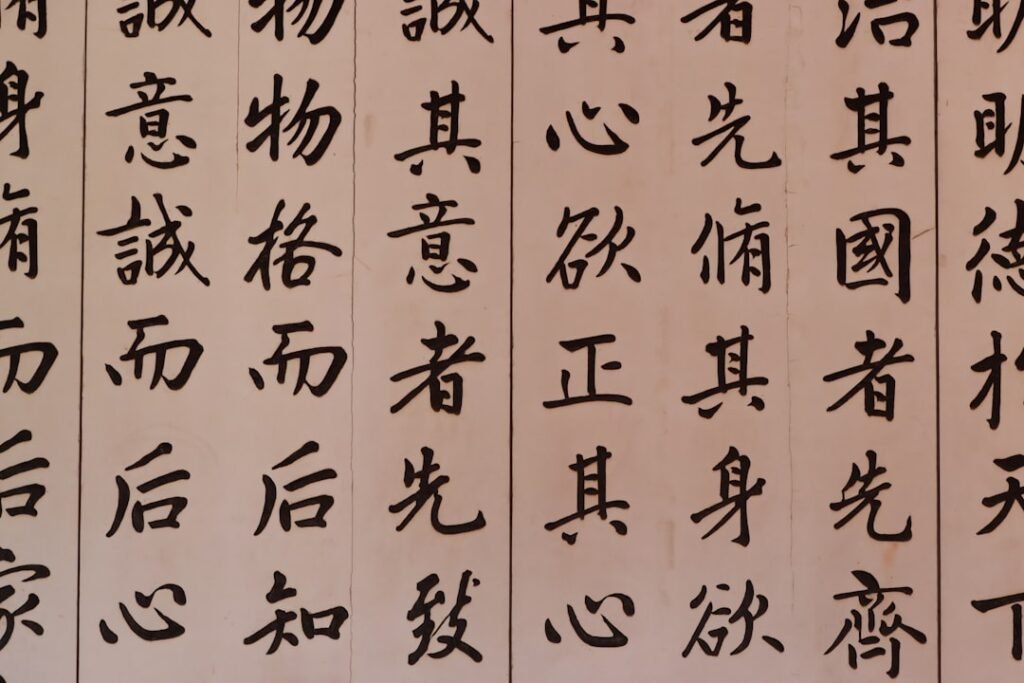 眀眀德扵天下
治其國者先齊
者先脩其身欲
其心欲正其心
誠其意者先致
物物格而后知
誠意誠而后心
脩身脩而后家